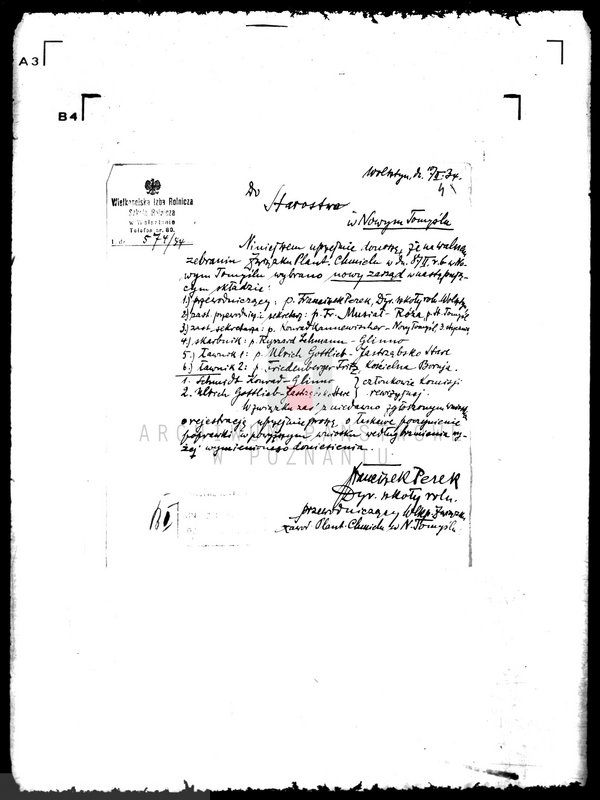 A3
B4
Wolsztyn, dn.
Wielkopolska Izba Rolnicza
Szkoła Rolnicza
w Wolsztynie
Telefon nr. 80.
L. dz. 574/34
Do
Starostwa
w Nowym Tomyślu
Niniejszem uprzejmie donoszę, że na walnem
zebraniu Związku Plant. Chmielu w dn. r. b. w No-
wym Tomyślu wybrano nowy zarząd w następują-
cym składzie:
1.) przewodniczący: p. Franciszek Perek, Dyr. szkoły roln. Wolsztyn
2.) zast. przewodn. i sekretarz: p. Fr. Musiał - Róża, p. N. Tomyśl
3.) zast. sekretarza: p. Konrad Kannewischer - Nowy Tomyśl,
4.) skarbnik: p. Ryszard Lehmann - Glinno
5.) Ławnik 1: p. Ulrich Gottlieb - Jastrzębsko Stare
6.) Ławnik 2: p. Friedenberger Fritz, Kościelna Boruja.
1. Schmidt Konrad - Glinno } członkowie Komisji
2. Ulrich Gottlieb - Jastrzębsko Stare } rewizyjnej.
W związku zaś z niedawno zgłoszonym wnioskiem
o rejestrację uprzejmie proszę o łaskawe poczynienie
poprawki w powyższym wniosku według brzmienia wy-
żej wymienionego doniesienia.
ARCHIWUM PAŃSTWOWE
W POZNANIU
Franciszek Perek
Dyr. szkoły roln.
przewodniczący Wlkp. Związku
Zawod. Plant. Chmielu w N. Tomyślu